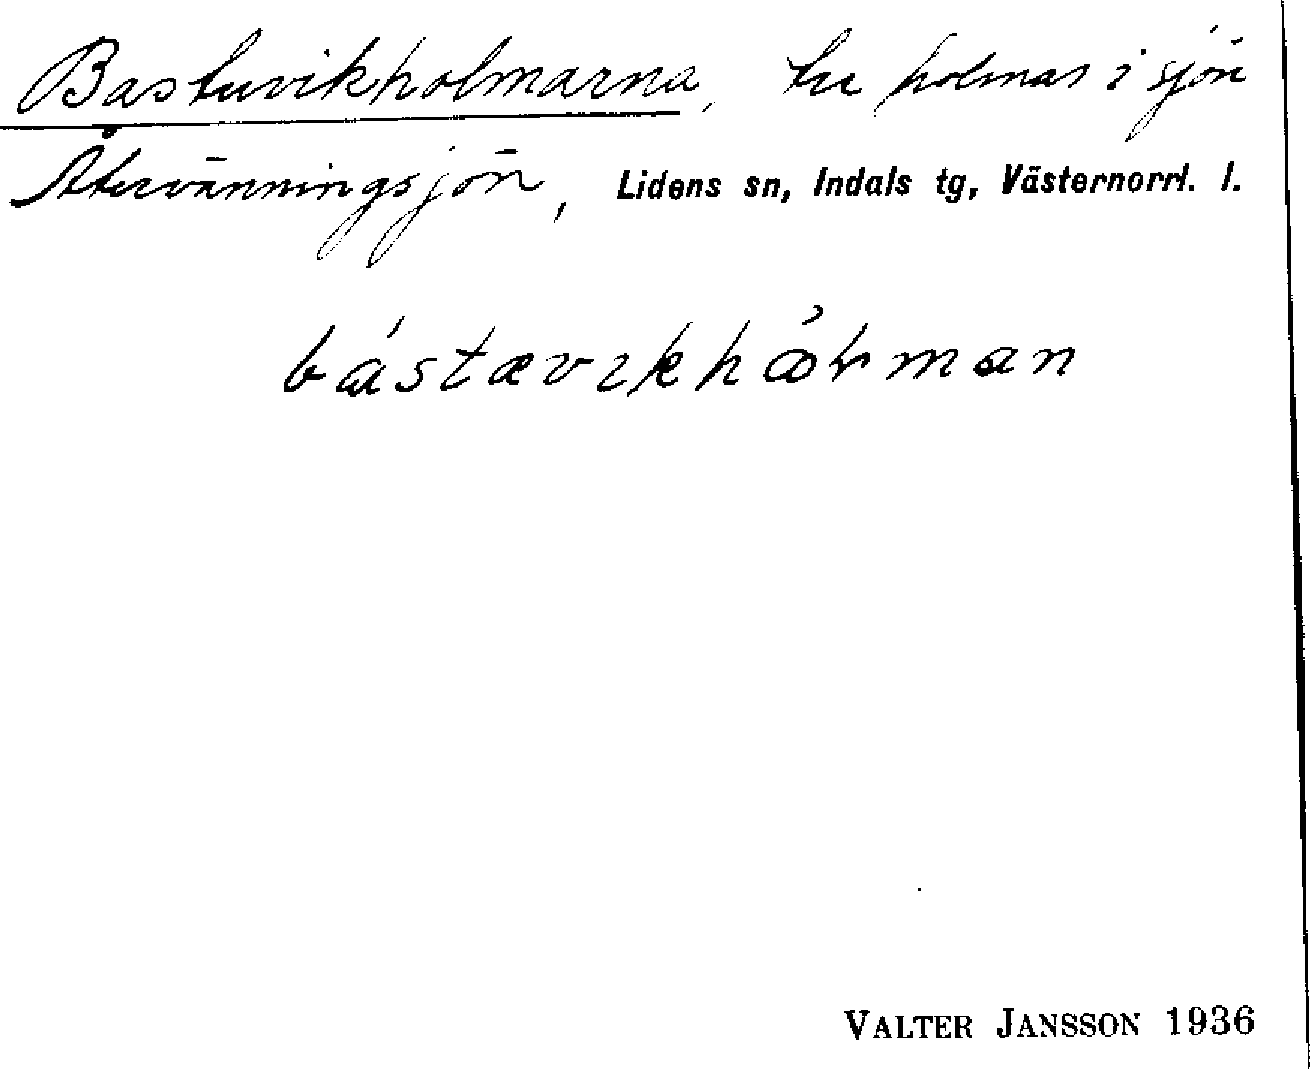 Bastuvikholmarna, tre holmar i sjön
Återvänningsjön, Lidens sn, Indals tg, Västernorrl. l.
bástævıkhåɽman
VALTER JANSSON 1936